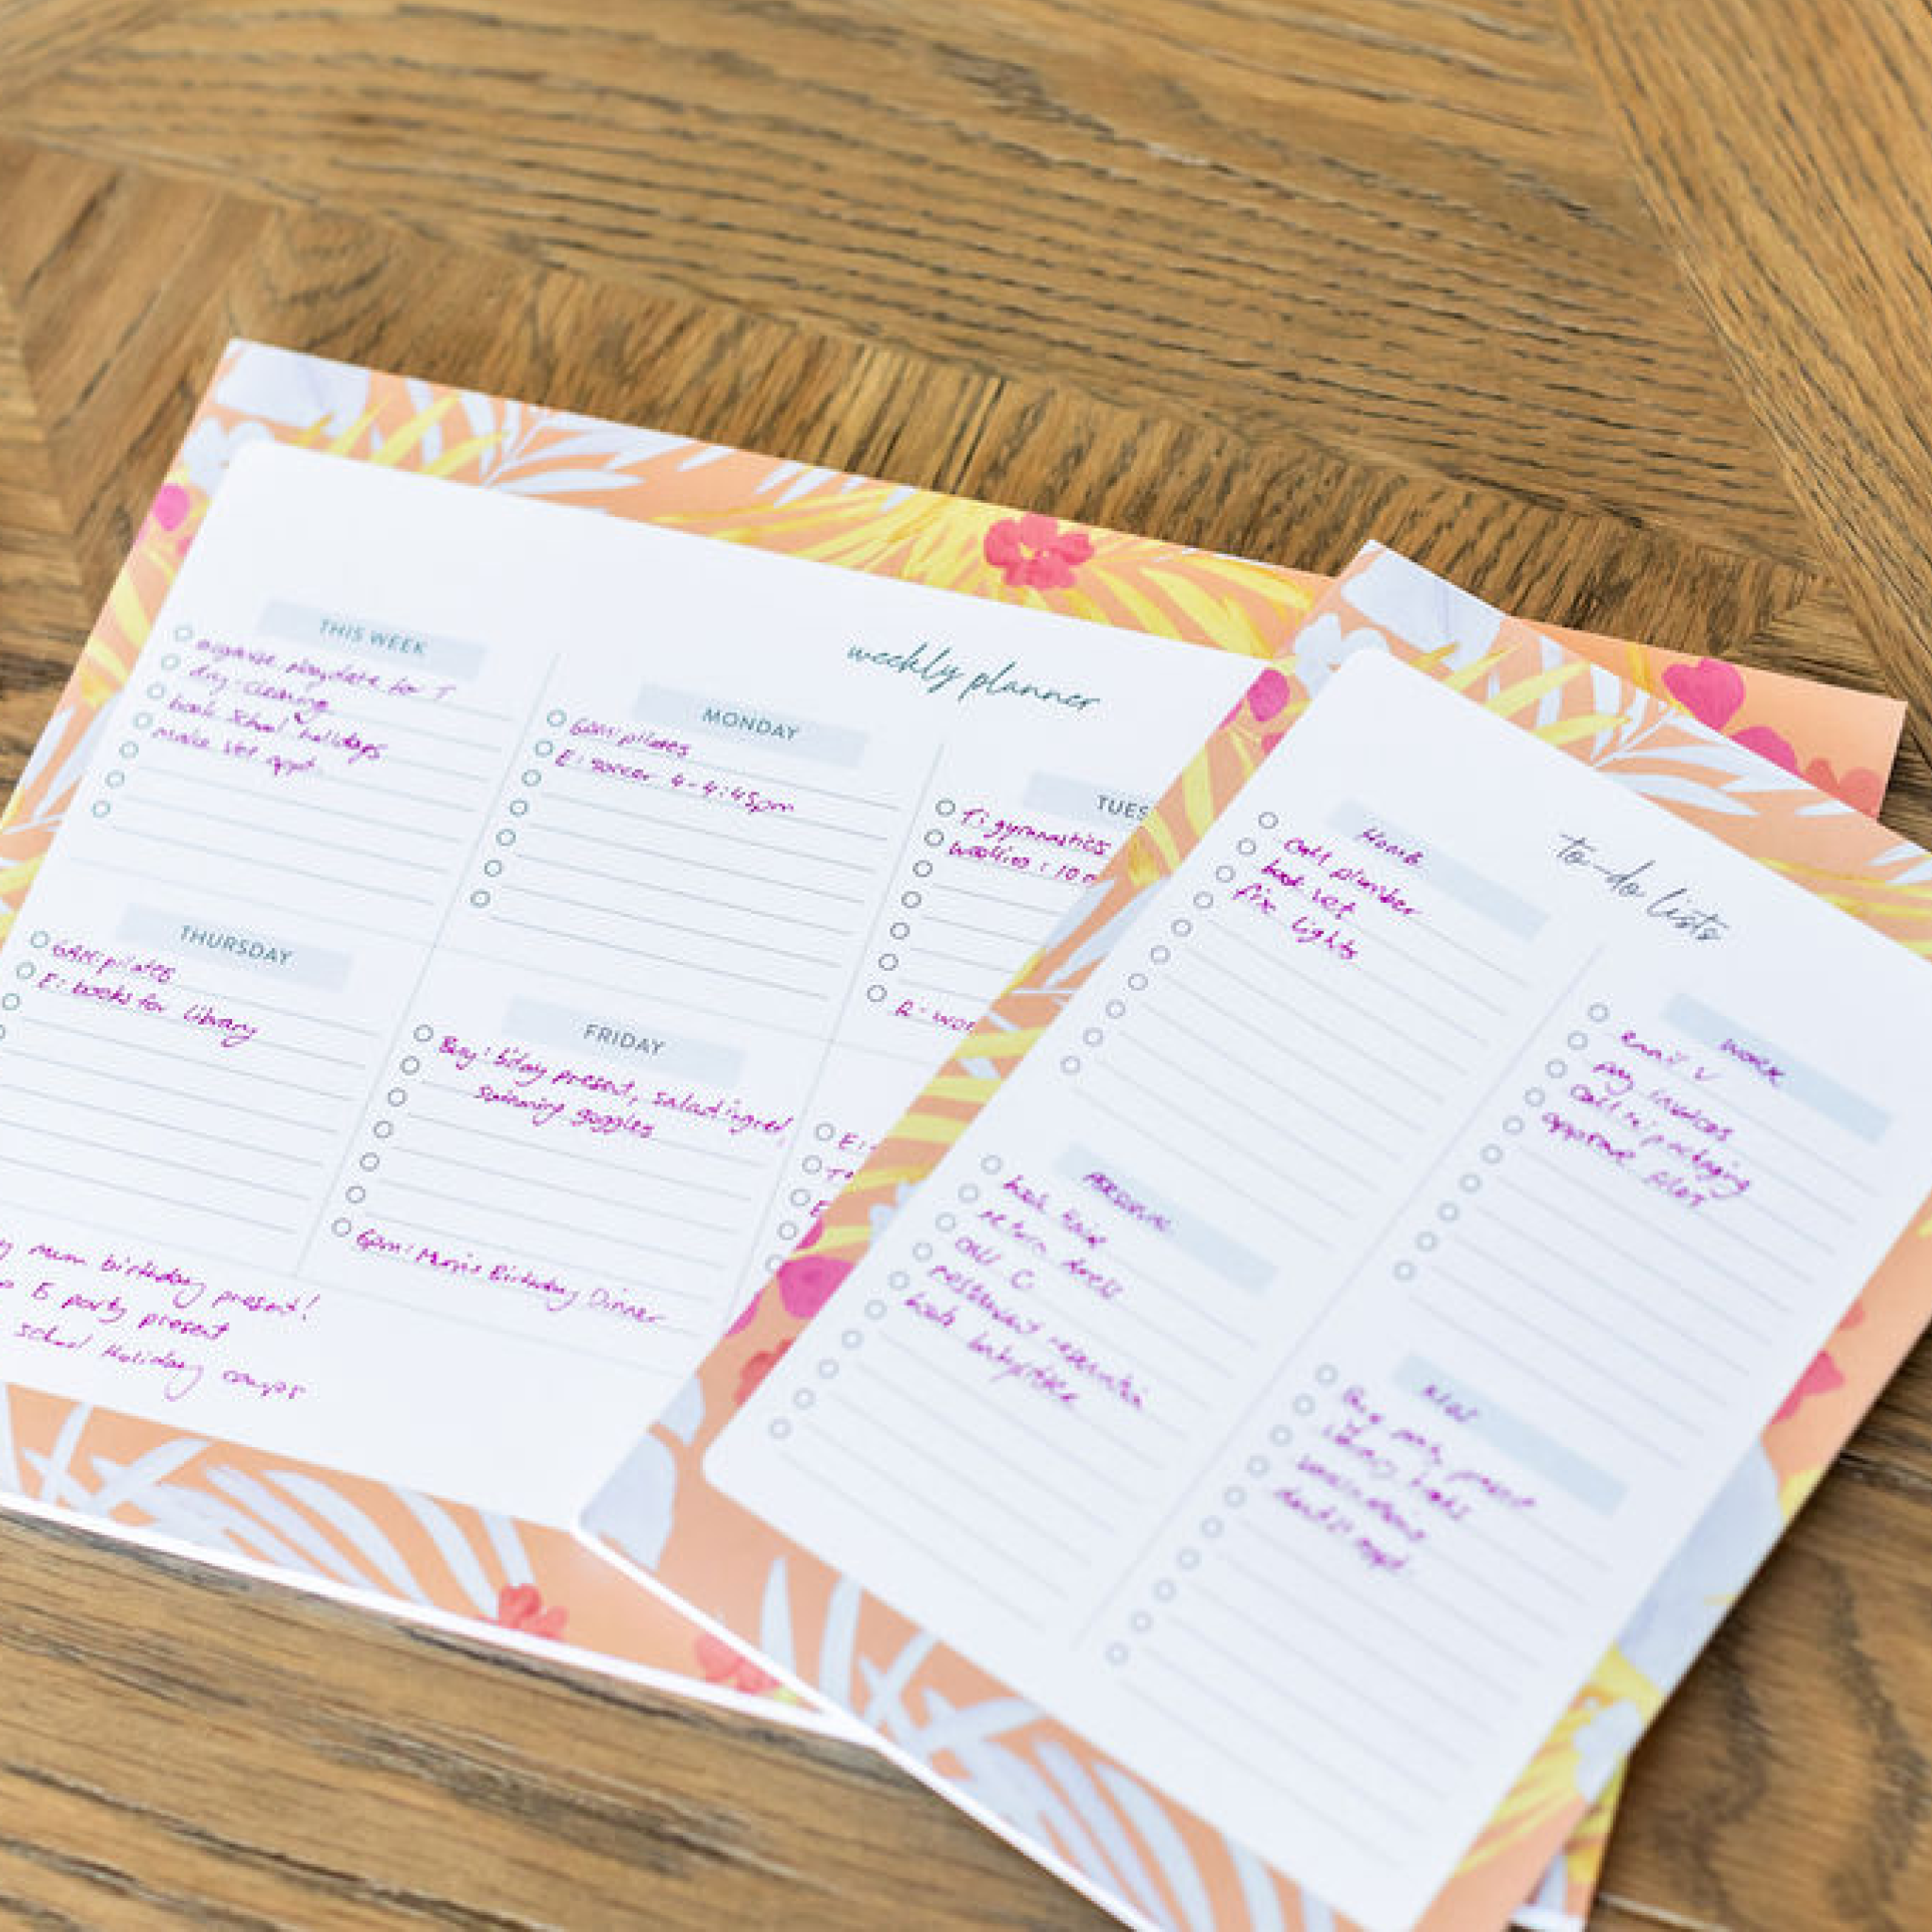 weekly planner
THIS WEEK
organise playdate for T
dry-cleaning
book school holidays
make vet appt.
MONDAY
6am pilates
E: soccer 4-4:45pm
TUES
T: gymnastics
R-wor
THURSDAY
6am pilates
E: books for library
FRIDAY
Buy: b'day present, salad ingred,
swimming goggles
6pm: Mum's Birthday Dinner
E:
E
mum birthday present!
E party present
school holiday camps
to-do lists
HOME
call plumber
book vet
fix lights
WORK
email V
pay invoices
packaging
approve
PERSONAL
book hair
return dress
call C
restaurant reservation
book babysitter
KIDS
Buy party present
library books
dentist appt